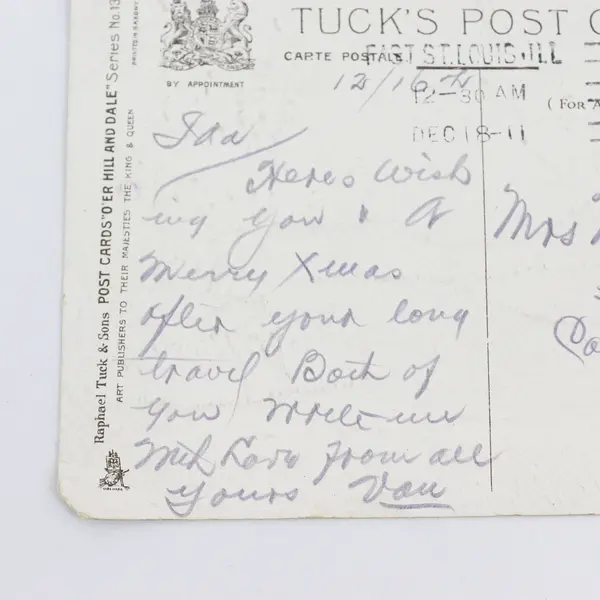 TUCK'S POST C
CARTE POSTALE
EAST ST. LOUIS, ILL
12/16
12-30 AM
DEC 18-11
(FOR A
BY APPOINTMENT
Raphael Tuck & Sons POST CARDS "O'ER HILL AND DALE" Series No. 13
ART PUBLISHERS TO THEIR MAJESTIES THE KING & QUEEN
Ida
Heres Wish
ing you & A
Merry Xmas
after your long
travel Both of
you write me
With Love from all
yours Van
Mrs